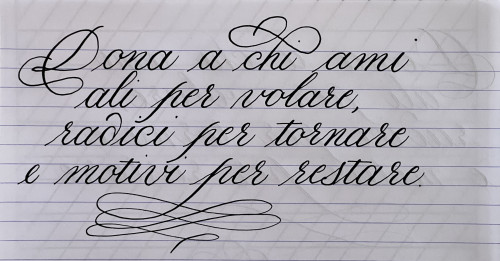 Dona a chi ami
ali per volare,
radici per tornare
e motivi per restare.